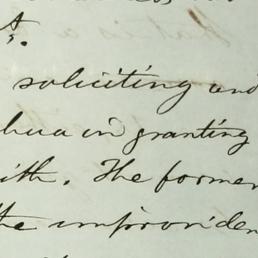 soliciting and
hua in granting
ith. The former
the improviden